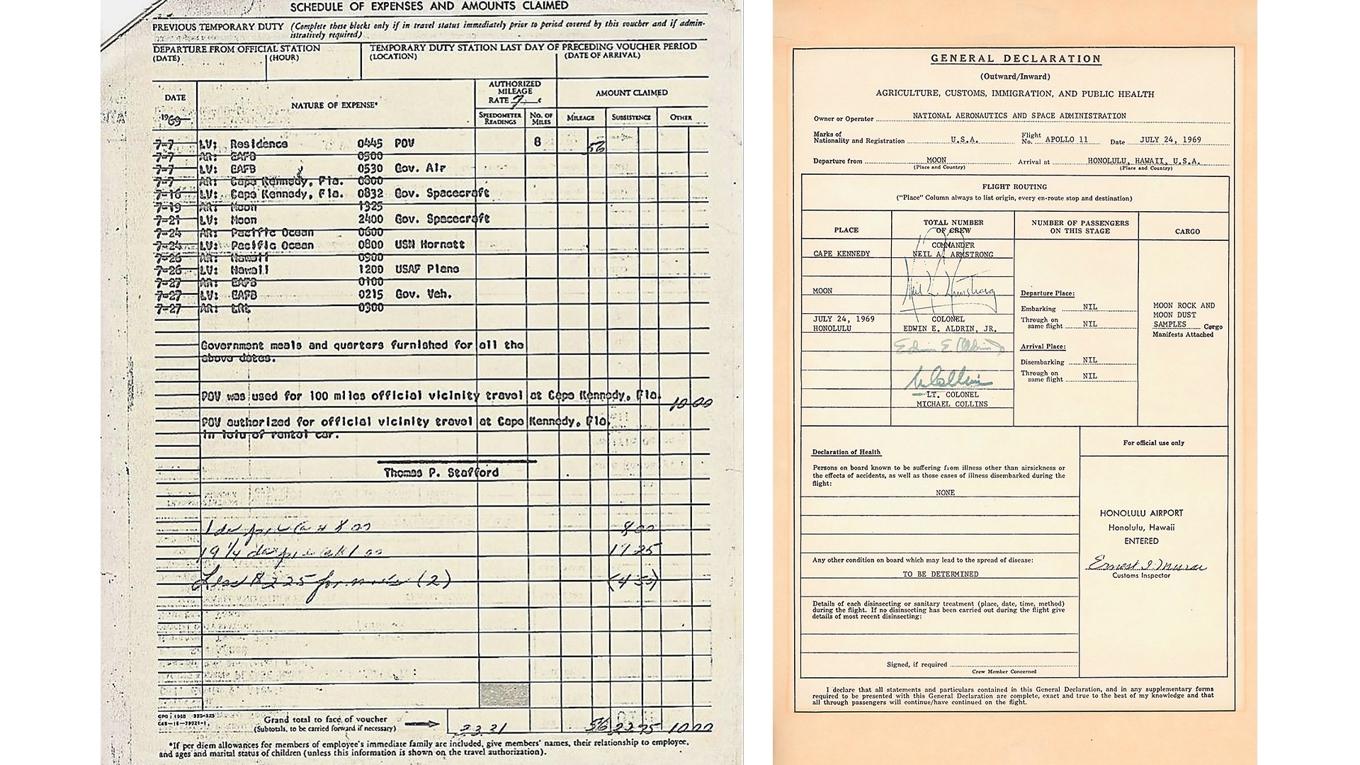 SCHEDULE OF EXPENSES AND AMOUNTS CLAIMED
PREVIOUS TEMPORARY DUTY (Complete these blocks only if in travel status immediately prior to period covered by this voucher and if admin-
istratively required)
DEPARTURE FROM OFFICIAL STATION
(DATE) (HOUR)
TEMPORARY DUTY STATION LAST DAY OF PRECEDING VOUCHER PERIOD
(LOCATION) (DATE OF ARRIVAL)
DATE
1969
NATURE OF EXPENSE*
AUTHORIZED
MILEAGE
RATE 7 ¢
AMOUNT CLAIMED
SPEEDOMETER
READINGS
NO. OF
MILES
MILEAGE
SUBSISTENCE
OTHER
7-7 LV: Residence 0445 POV 8 56
7-7 AR: EAFB 0500
7-7 LV: EAFB 0530 Gov. Air
7-7 AR: Cape Kennedy, Fla. 0800
7-16 LV: Cape Kennedy, Fla. 0832 Gov. Spacecraft
7-19 AR: Moon 1325
7-21 LV: Moon 2400 Gov. Spacecraft
7-24 AR: Pacific Ocean 0600
7-24 LV: Pacific Ocean 0800 USN Hornett
7-26 AR: Hawaii 0900
7-26 LV: Hawaii 1200 USAF Plane
7-27 AR: EAFB 0100
7-27 LV: EAFB 0215 Gov. Veh.
7-27 AR: 0300
Government meals and quarters furnished for all the
above dates.
POV was used for 100 miles official vicinity travel at Cape Kennedy, Fla. 10.00
POV authorized for official vicinity travel at Cape Kennedy, Fla.
in leiu of rental car.
Thomas P. Stafford
8.00
(2)
Grand total to face of voucher
(Subtotals, to be carried forward if necessary)
33.31 56 22.75 10.00
*If per diem allowances for members of employee's immediate family are included, give members' names, their relationship to employee,
and ages and marital status of children (unless this information is shown on the travel authorization).
GENERAL DECLARATION
(Outward/Inward)
AGRICULTURE, CUSTOMS, IMMIGRATION, AND PUBLIC HEALTH
Owner or Operator NATIONAL AERONAUTICS AND SPACE ADMINISTRATION
Marks of
Nationality and Registration U.S.A. Flight
No. APOLLO 11 Date JULY 24, 1969
Departure from MOON
(Place and Country)
Arrival at HONOLULU, HAWAII, U.S.A.
(Place and Country)
FLIGHT ROUTING
("Place" Column always to list origin, every en-route stop and destination)
PLACE
TOTAL NUMBER
OF CREW
NUMBER OF PASSENGERS
ON THIS STAGE
CARGO
CAPE KENNEDY
MOON
JULY 24, 1969
HONOLULU
COMMANDER
NEIL A. ARMSTRONG
COLONEL
EDWIN E. ALDRIN, JR.
LT. COLONEL
MICHAEL COLLINS
Departure Place:
Embarking NIL
Through on
same flight NIL
Arrival Place:
Disembarking NIL
Through on
same flight NIL
MOON ROCK AND
MOON DUST
SAMPLES Cargo
Manifests Attached
Declaration of Health
Persons on board known to be suffering from illness other than airsickness or
the effects of accidents, as well as those cases of illness disembarked during the
flight:
NONE
Any other condition on board which may lead to the spread of disease:
TO BE DETERMINED
Details of each disinsecting or sanitary treatment (place, date, time, method)
during the flight. If no disinsecting has been carried out during the flight give
details of most recent disinsecting:
Signed, if required
Crew Member Concerned
For official use only
HONOLULU AIRPORT
Honolulu, Hawaii
ENTERED
Customs Inspector
I declare that all statements and particulars contained in this General Declaration, and in any supplementary forms
required to be presented with this General Declaration are complete, exact and true to the best of my knowledge and that
all through passengers will continue/have continued on the flight.